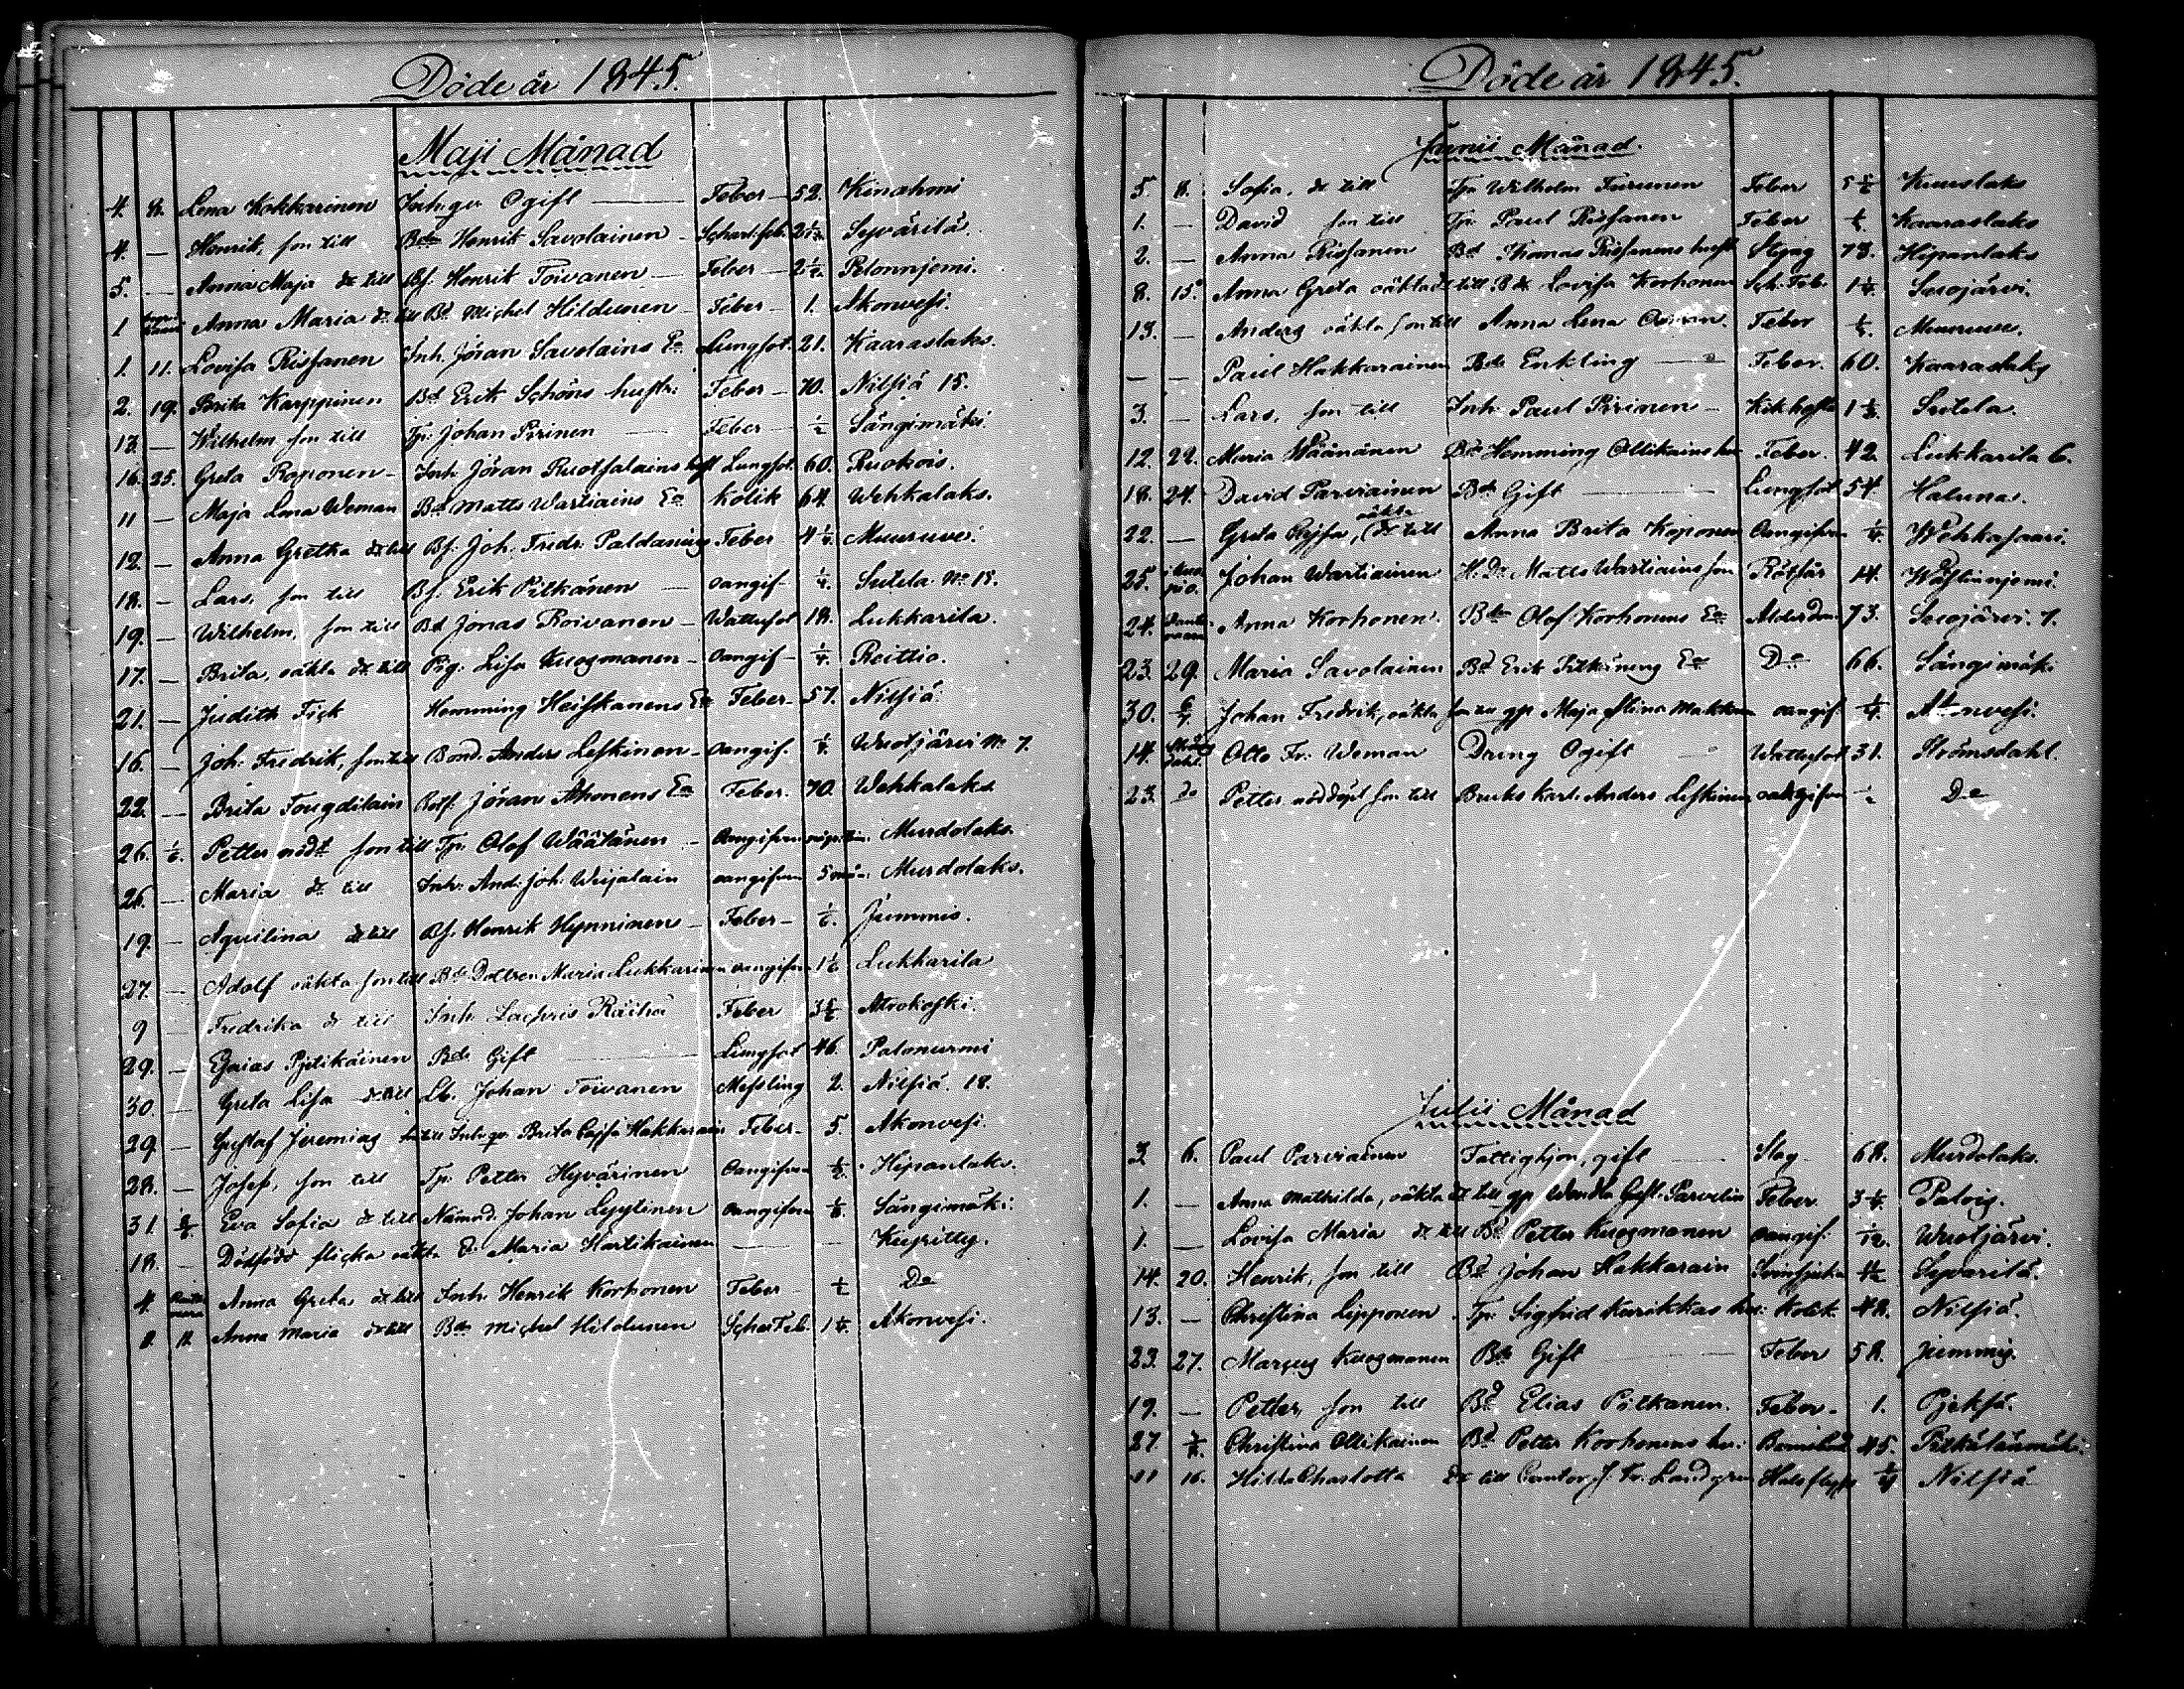 Döde år 1845.
Maji Månad
4. 8. Lena Kokkarinen Inh.ga Ogift Feber 52. Kinahmi
4. — Henrik, son till Bde Henrik Savolainen Schar. feb. Syvärilä.
5. — Anna Maja dr till Bs. Henrik Toivanen Feber 2 1/2. Pelonnjemi.
1 Anna Maria dr till Bd. Michel Hildunen Feber 1. Akonvesi.
1. 11. Lovisa Rissanen Inh. Jöran Savolains Ea Lungsot. 21. Kaaraslaks.
2. 19. Brita Karppinen Bd Erik Schöns hustr: Feber 70. Nilsiä 15.
13. — Wilhelm son till Tp: Johan Pirinen Feber 1/2 Sängimäki.
16. 25. Greta Roponen Inh. Jöran Ruotsalains hust Lungsot. 60. Ruokois.
11 — Maja Lena Weman Bd. Matts Wartiains Ea Kolik 64. Wehkalaks.
12. — Anna Gretha dr till Bs. Joh. Fredr. Paldanius Feber 4 1/4. Muuruve.
18. — Lars, son till Bs. Erik Pitkänen oangif. 1/4. Sutela No 15.
19. — Wilhelm, son till Bd Jonas Roivanen Wattusot 18. Lukkarila.
17. — Brita, oäkta dr till Pig. Lisa Kuosmanen oangif 1/4. Reittio.
21. — Judith Fick Hemming Heiskanens Ea Feber 57. Nilsiä.
16. — Joh. Fredrik, son till Bond. Anders Leskinen oangif. 1/4. Wuotjärvi No 7.
22. — Brita Tougdilain Rotf. Jöran Ahonens Ea Feber. 70. Wehkalaks
26. 1/6. Petter nödt son till Tp. Olof Wäätänen Oangifven Murdolaks.
26. — Maria dr till Inh: And: Joh: Weijalain oangifven 5 mån: Murdolaks.
19. — Aquilina dr till Bs. Henrik Hynninen Feber 1/6. Jummis.
27. — Adolf oäkta son till Bde Dottren Maria Lukkarinen oangifven 1 1/2 Lukkarila
9 — Fredrika dr till Inh. Lachris Räihä Feber Atrokoski.
29. — Esaias Pjelikäinen Bde Gift Lungsot 46. Palonurmi
30. — Greta Lisa dr till Lb. Johan Toivanen Messling 2. Nilsiä. 18.
29. — Gustaf Jeremias Inh.ga Brita Cajsa Hakkarain Feber 5. Akonvesi.
28. — Josef, son till Tp. Petter Hyvärinen Oangifven Hipanlaks.
31. Eva Sofia dr till Nämnd. Johan Lyytinen oangifven Sängimäki.
18. — Dödfödd flicka oäkta Maria Hartikainen — — Kupritty.
4. Anna Greta dr till Inh. Henrik Korhonen Feber 1/2 Do
8. 11. Anna Maria dr till Bde Michel Hildunen Schar Feb. Akonvesi.
Döde år 1845.
Junii Månad.
5. 8. Sofia, dr till Tp. Wilhelm Turunen Feber Kuuslaks
1. — David son till Tp. Paul Rissanen Feber Kaaraslaks
2. — Anna Rissanen Bd Thomas Rissanens hust Styng 78. Hipanlaks
8. 15. Anna Greta oäkta dr till B dr Lovisa Korhonen Sch. Feb. Suojärvi.
13. — Anders oäkta son till Anna Lena Feber Muuruve.
— — Paul Hakkarainen Bde Enkling Feber. 60. Kaaraslaks
3. — Lars, son till Inh. Paul Pirinen Kikhosta Sutela.
12. 22. Maria Wäänänen Bde Hemming Ollikains hu Feber. 42. Lukkarila 6.
18. 24. David Parviainen Bde Gift Lungsot 54 Haluna.
22. — Greta Cajsa, oäkta dr till Anna Brita Koponen Oangifven Wehkasaari.
25. Johan Wartiainen H. Dr Matts Wartiains son Rötsår 14. Wästinnjemi.
24. Anna Korhonen Bde Olof Korhonens Ea Alderdom 73. Suojärvi. 7.
23. 29. Maria Savolainen Bd Erik Pitkänens Ea Do 66. Sängimäki
30. 6/7. Johan Fredrik, oäkta son till gp Maja Stina Makkon oangif. Akonvesi.
14. Otto Fr. Weman Dreng Ogift Wattusot 31. Strömsdahl.
23. Do Petter nöddöpt son till Bruks Karl. Anders Leskinen oangifven Do
Julii Månad
3. 6. Paul Parviainen Fattighjon, gift Slag 68. Murdolaks.
1. — Anna Mathilda, oäkta dr till gp Wendla Gust. Parvelin Feber Palois.
1. — Lovisa Maria dr till Bd Petter Kuosmanen oangif. 1/12. Wuotjärvi.
14. 20. Henrik, son till Bd Johan Hakkarain Syvärilä.
13. — Christina Lipponen Tp. Sigfrid Kurikkas hu: Kolik 48. Nilsiä.
23. 27. Marcus Kuosmanen Bde Gift Feber 58. Jummis.
19. — Petter, son till Bd Elias Pitkänen. Feber 1. Pjeksä.
27. Christina Ollikainen Bd Petter Korhonens hu: 45. Pitkälänmäki.
11 16. Hilda Charlotta dr till Cantor J. Fr. Landgren Nilsiä